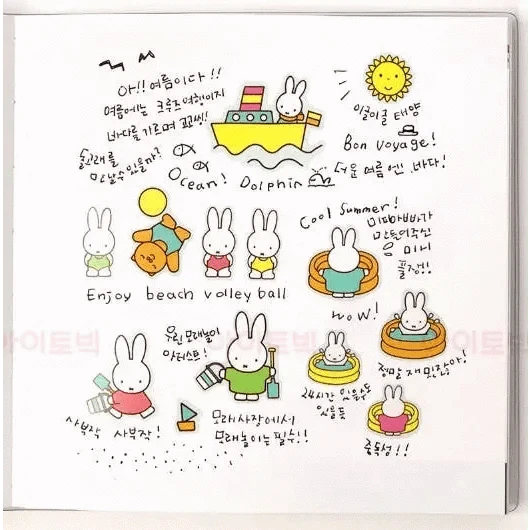 아!! 여름이다!!
여름에는 크루즈여행이지
바다를 가르며 고고씽!
돌고래를
만날수있을까?
Ocean! Dolphin
이글이글 태양
Bon Voyage!
더운 여름엔 바다!
Cool Summer!
미피아빠가
만들어주신
미니
풀장!!
Enjoy beach volley ball
WOW!
정말 재밌잖아!
우린 모래놀이
아티스트!
24시간 있을수도
있을듯
사부작 사부작!
모래사장에서
모래놀이는 필수!!
중독성!!
아이토빅